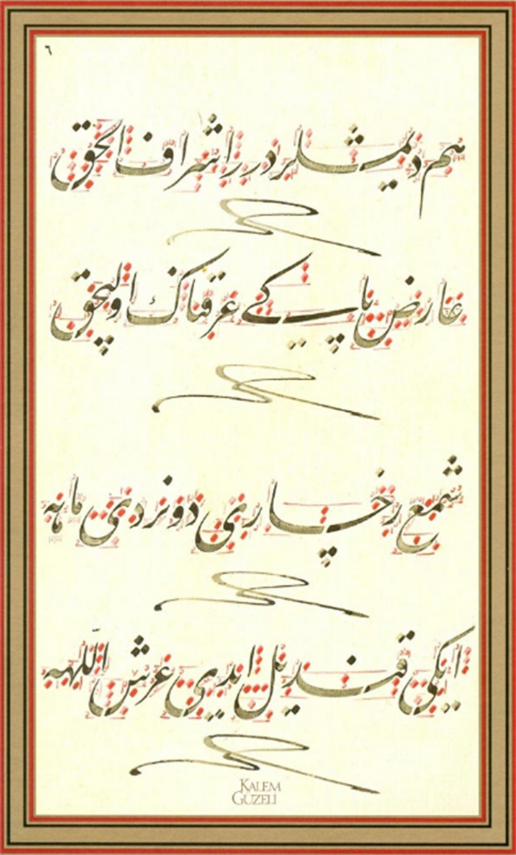 ٦
هم دیمشلردر اشراف الحق
عارض پاکی عرقناک اولیجق
شمع رخساری دونردی ماهه
ایکی قندیل ایدی عرش اللهه
KALEM
GUZELI